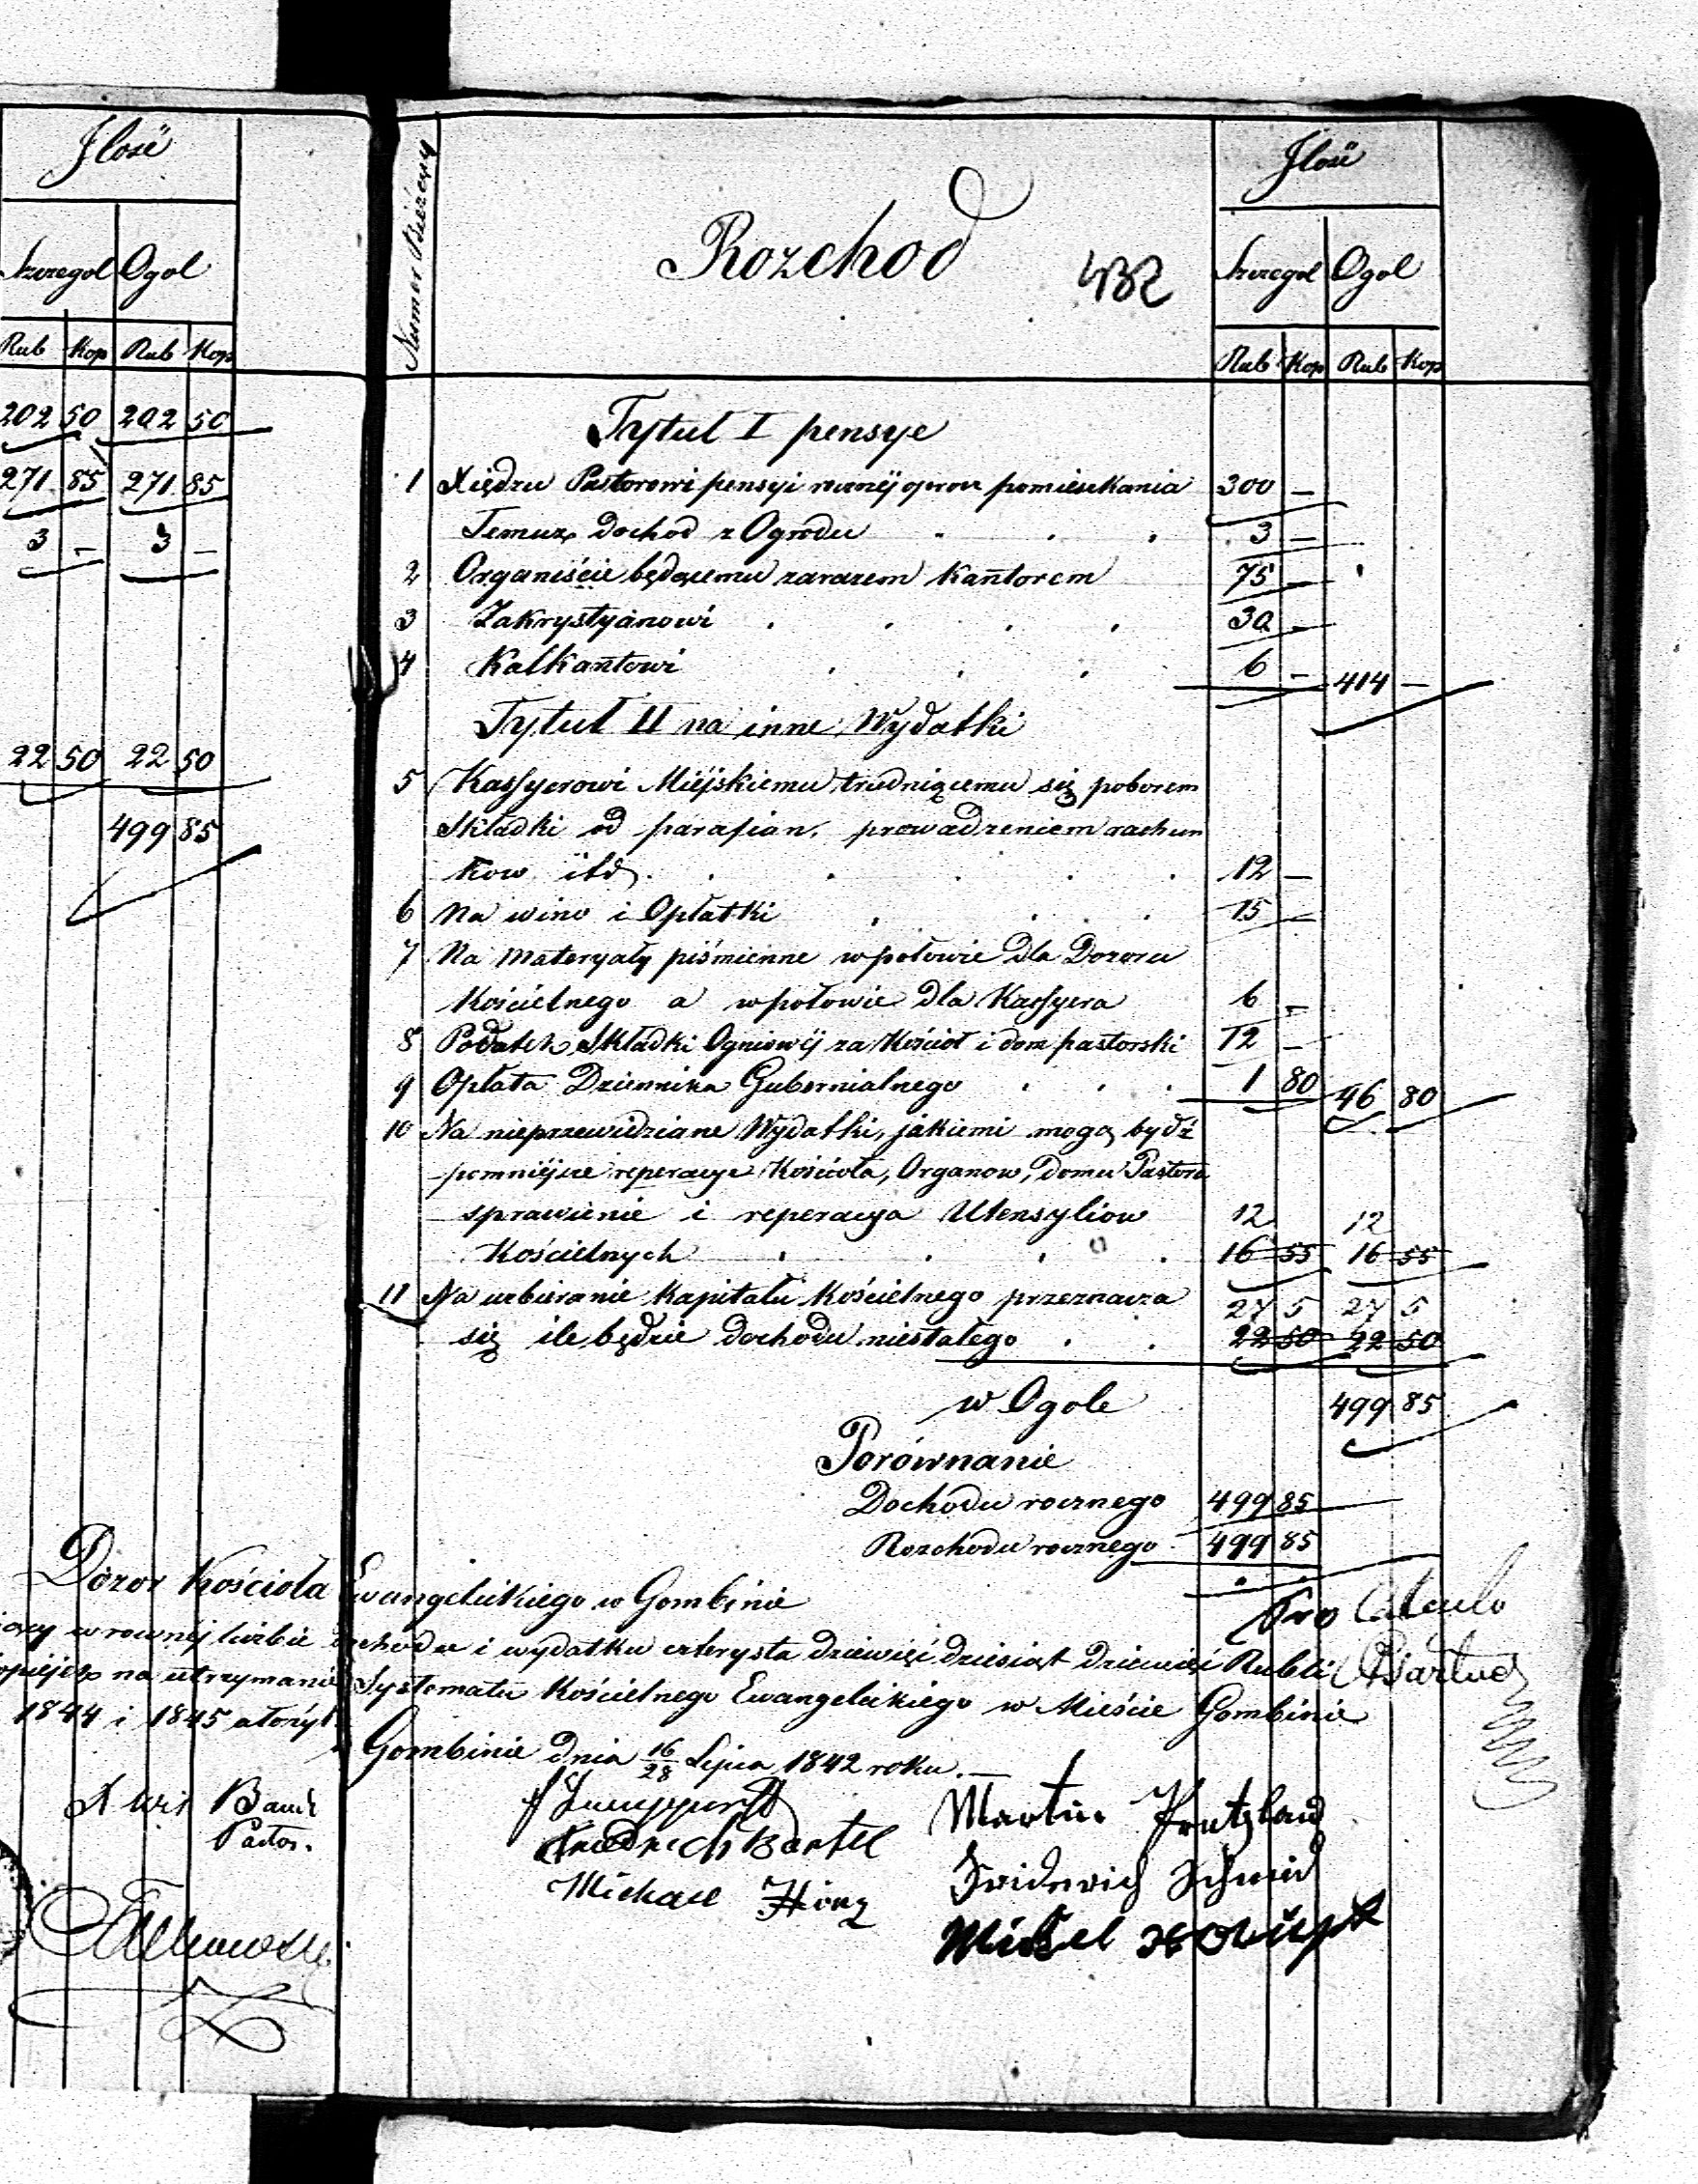 Jlość
Szczegol Ogol
Rub Kop Rub Kop
202 50 202 50
271 85 271 85
3 – 3 –
22 50 22 50
499 85
Numer Bieżący
Rozchod
432
Jlość
Szczegol Ogol
Rub Kop Rub Kop
Tytul I pensye
1 Xiędzu Pastorowi pensyi rocznéj oprocz pomieszkania 300 –
Temuż dochod z Ogrodu 3 –
2 Organiście będącemu zarazem Kantorem 75 –
3 Zakrystyanowi 30 –
4 Kalkantowi 6 – 414 –
Tytuł II na inne Wydatki
5 Kassyerowi Miéjskiemu trudniącemu się poborem
Składki od parafian, prowadzeniem rachun
kow itd. 12 –
6 Na wino i Opłatki 15 –
7 Na materyały piśmienne w połowie dla Dozoru
Kościelnego a w połowie dla Kassyera 6 –
8 Podatek Składki Ogniowéj za Kościoł i dom pastorski 12 –
9 Opłata Dziennika Gubernialnego 1 80 46 80
10 Na nieprzewidziane Wydatki, jakiemi mogą bydź
pomniéjsze reperacye Kościoła, Organow, Domu Pastora
sprawienie i reperacya Utensyliow 12 12
Kościelnych 16 55 16 55
11 Na uzbieranie Kapitału Kościelnego przeznacza 27 5 27 5
się ile będzie dochodu niestałego 22 50 22 50
w Ogole 499 85
Porównanie
Dochodu rocznego 499 85
Rozchodu rocznego 499 85
Dozor Kościoła Ewangelickiego w Gombinie
w rownéj liczbie dochodu i wydatku czterysta dziewięć dziesiąt dziewięć Rubli
na utrzymanie Systematu Kościelnego Ewangelickiego w Mieście Gombinie
1844 i 1845 ułożył
Gombinie dnia 16/28 Lipca 1842 roku.
Pro Calculo
Pastor.
Friedrich Bartel
Michael Hinz
Martin
Fridrich Schmid
Michel